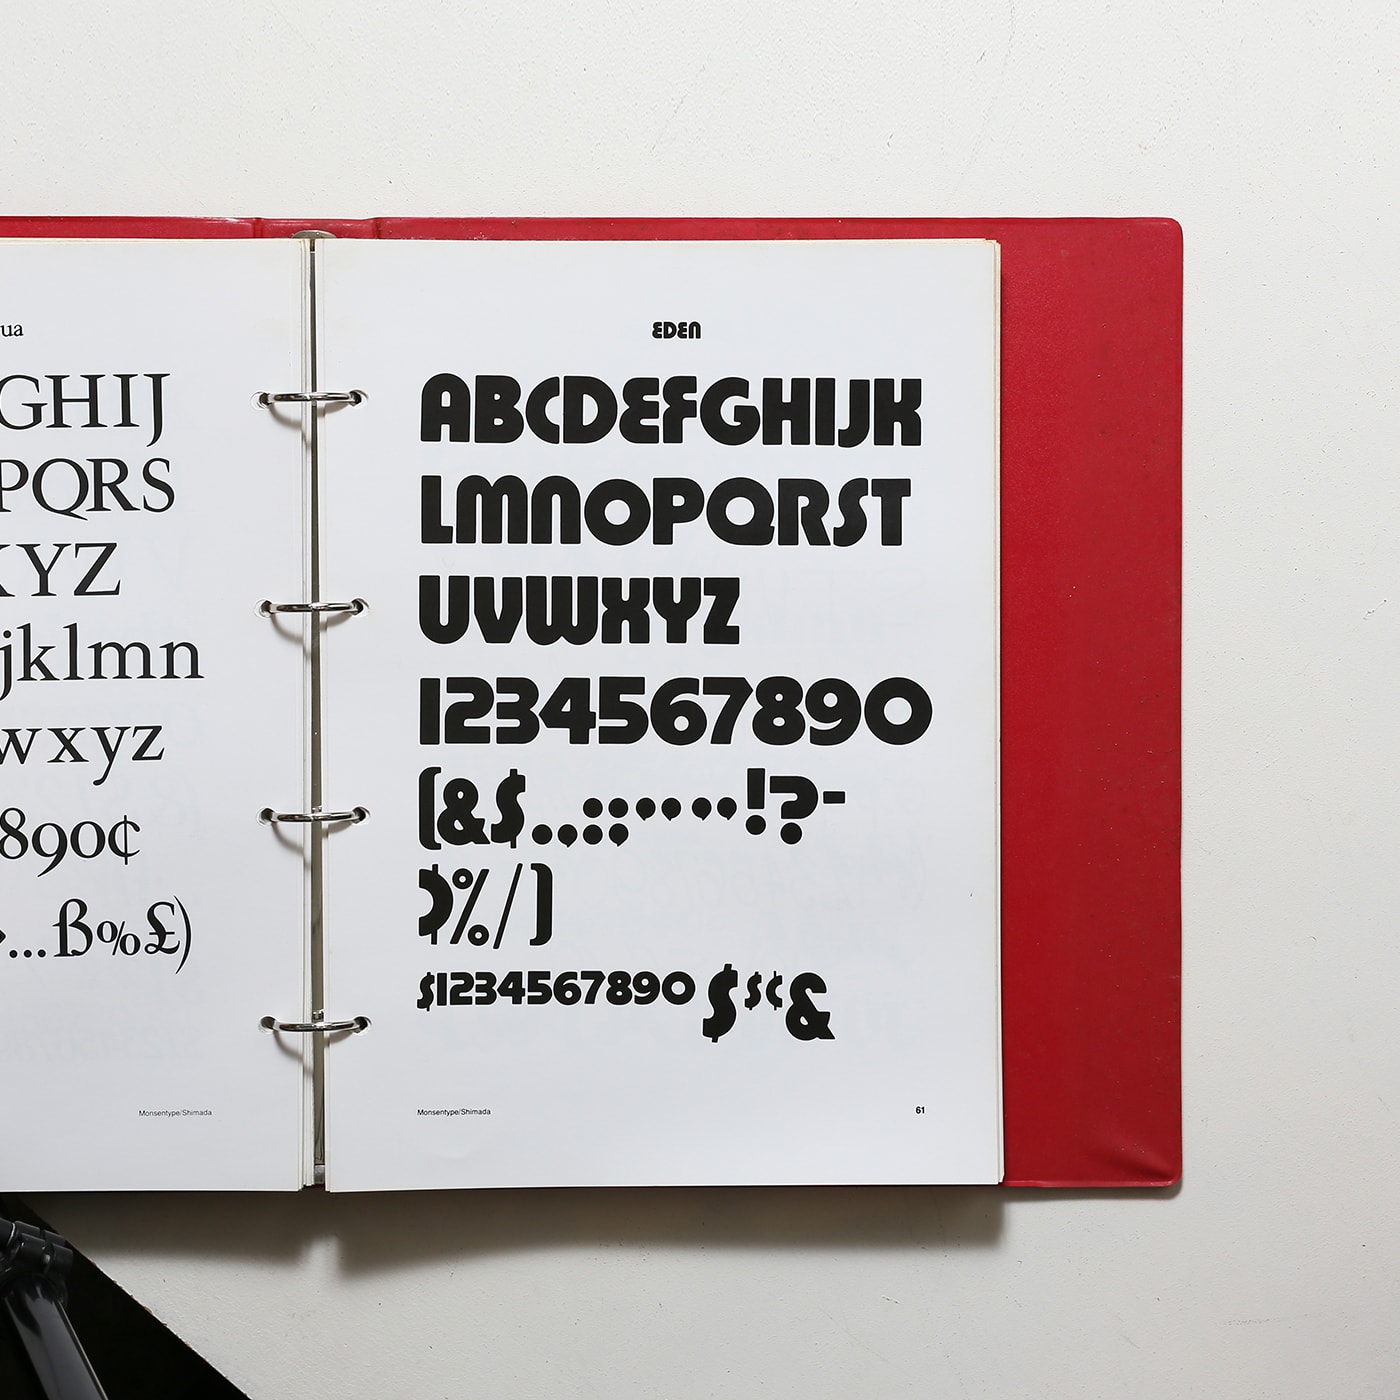 ua
GHIJ
PQRS
XYZ
jklmn
wxyz
890¢
...ß%£)
Monsentype/Shimada
EDEN
ABCDEFGHIJK
LMNOPQRST
UVWXYZ
1234567890
(&$.,:;‘’“”!?-
$%/)
$1234567890 $$¢&
Monsentype/Shimada
61